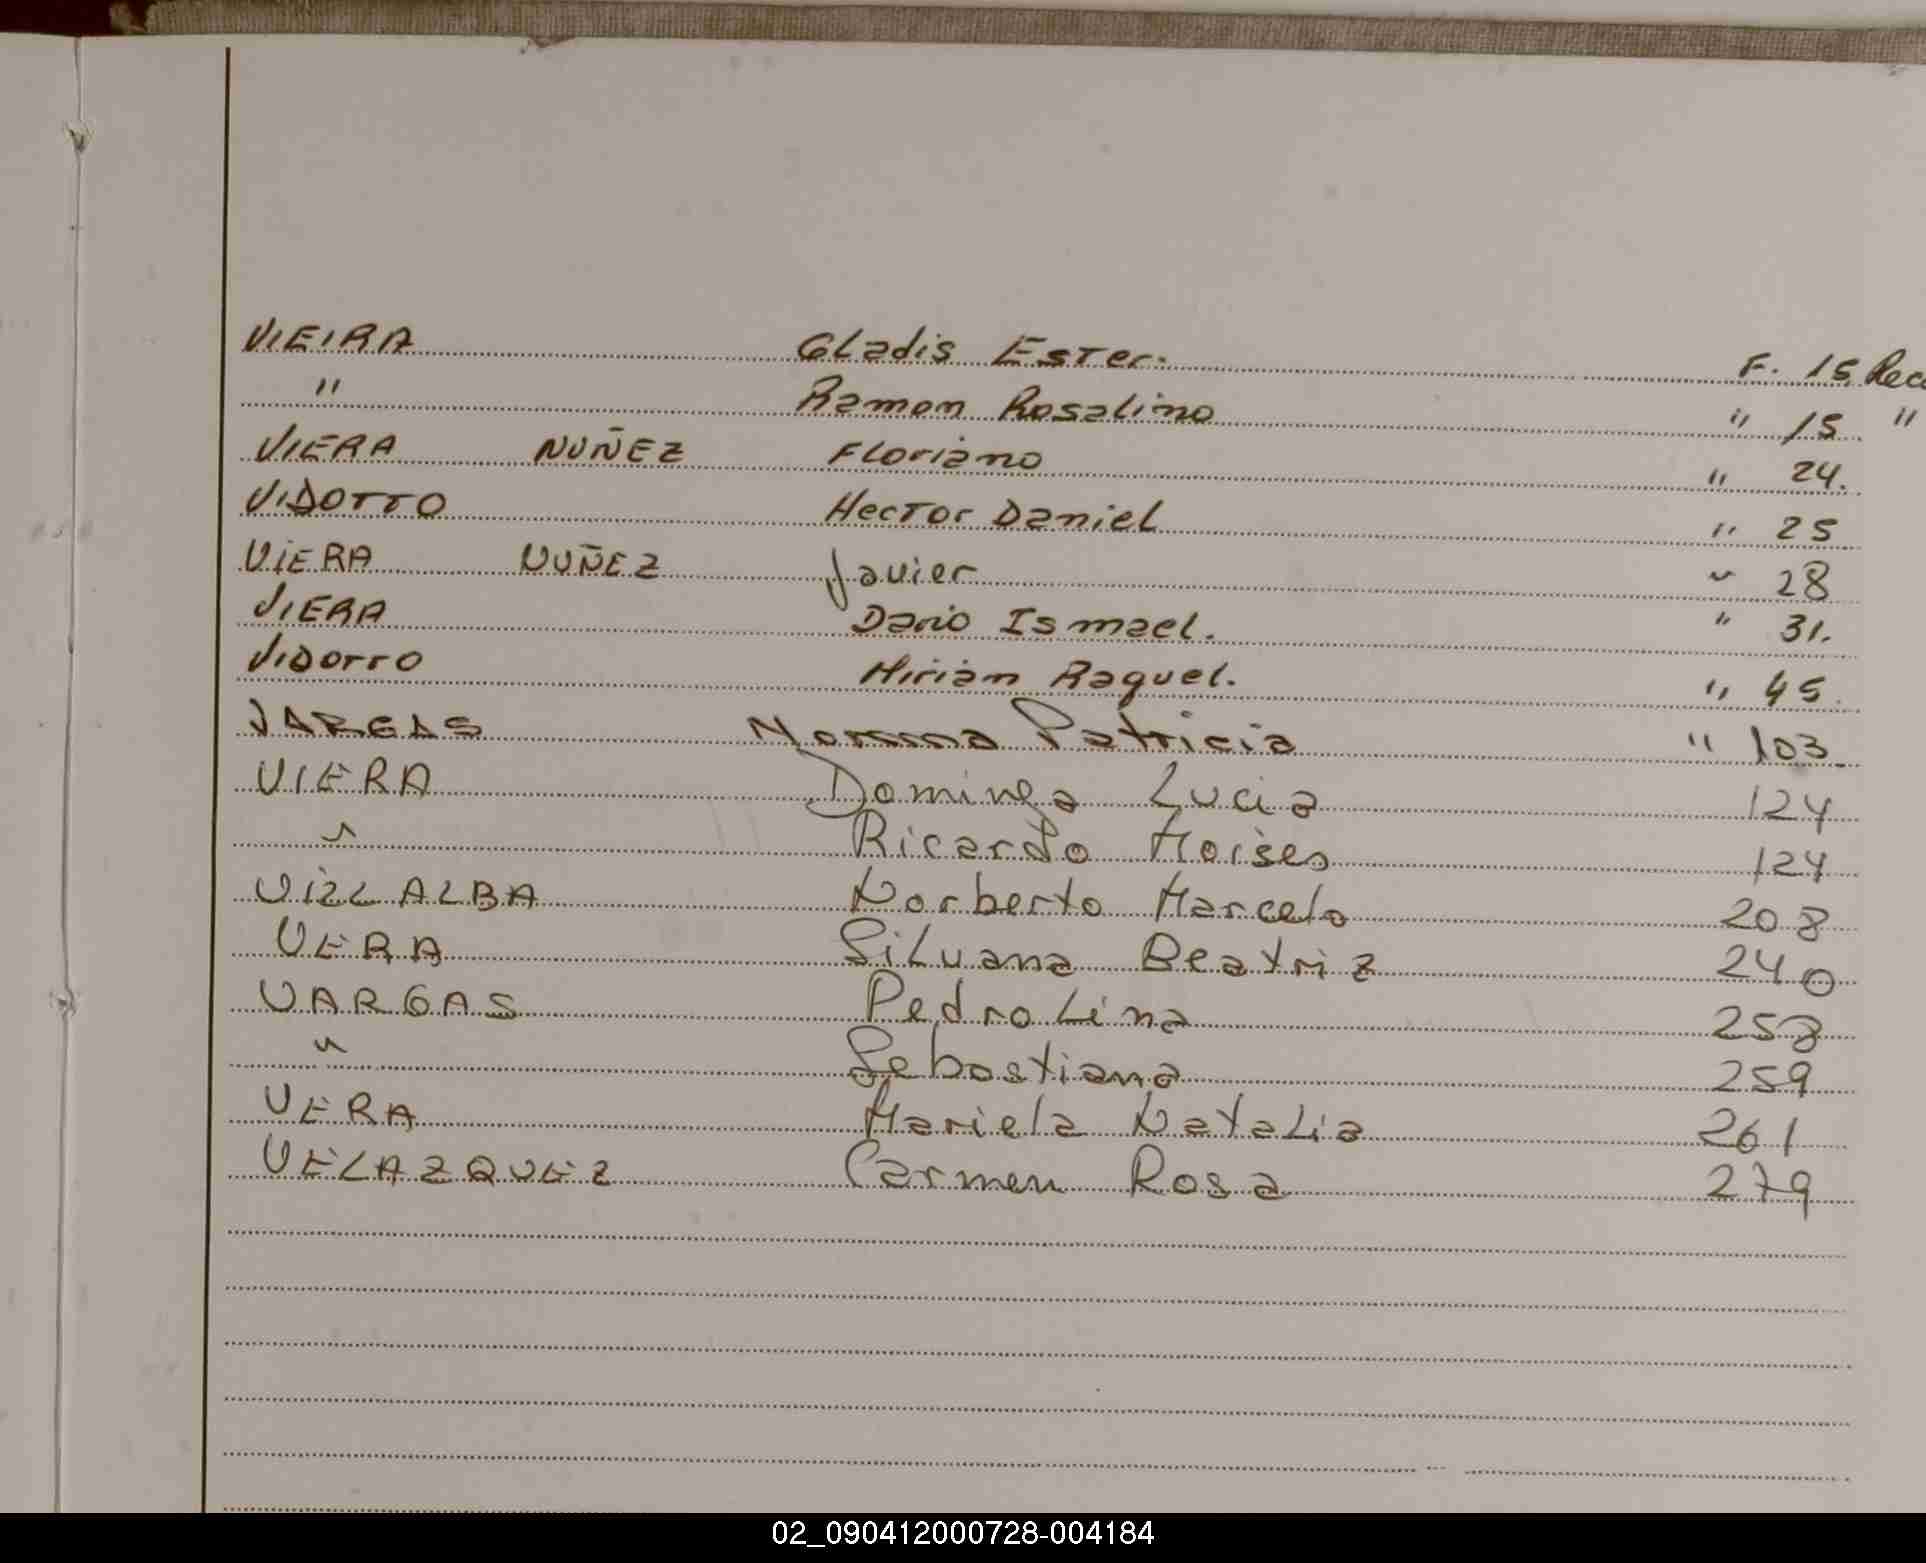 VIEIRA Gladis Ester. F. 15 Rec
" Ramon Rosalino " 15. "
VIERA NUÑEZ Floriano " 24.
VIDOTTO Hector Daniel " 25
VIERA NUÑEZ Javier " 28
VIERA Dario Ismael. " 31.
VIDOTTO Miriam Raquel. " 45.
VARGAS Norma Patricia " 103.
VIERA Dominga Lucia 124
" Ricardo Moises 124
VILLALBA Norberto Marcelo 208
VERA Siluana Beatriz 240
VARGAS Pedro Lina 258
" Sebastiana 259
VERA Mariela Natalia 261
VELAZQUEZ Carmen Rosa 279
02_090412000728-004184